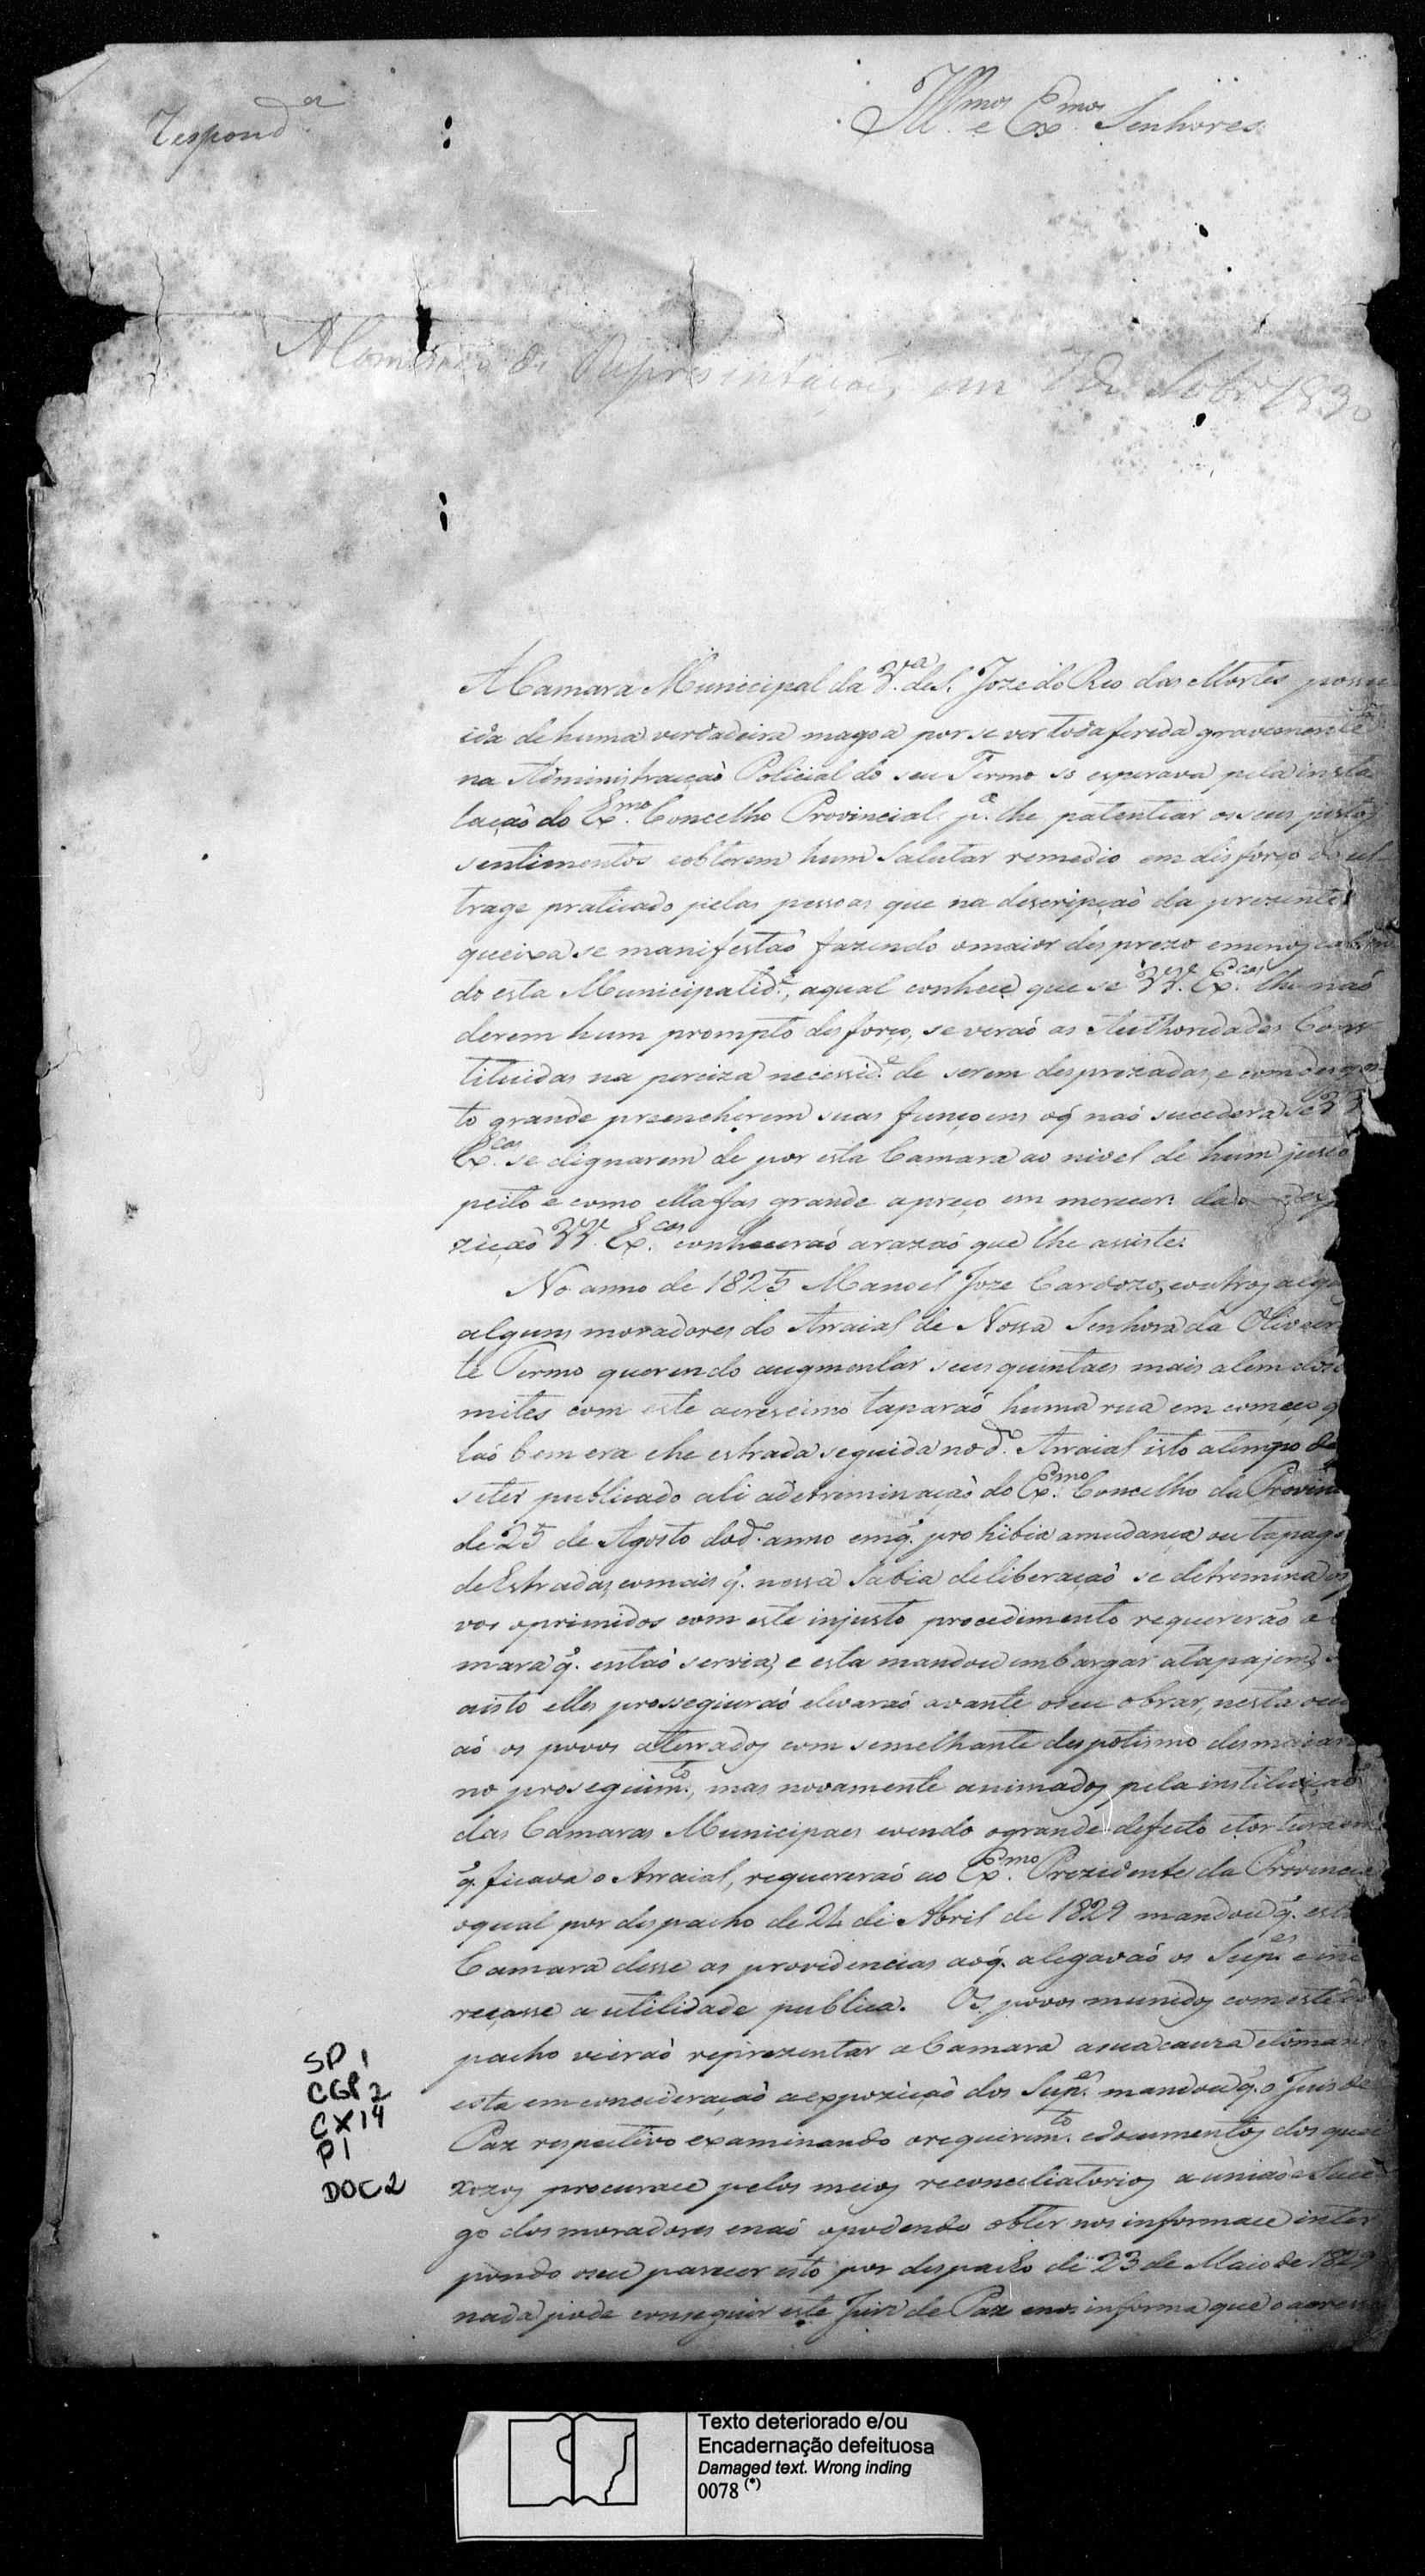 Respond.da
Ill.mos e Ex.mos Senhores
A Comissaõ de Representaçoẽs, em 7 de Setbr.o 1830
A Camara Municipal da V.a de S. Joze do Rio das Mortes possu
ida de huma verdadeira magoa por se ver toda ferida gravemente
na Administraçaõ Policial do seu Termo so esperava pela insta
laçaõ do Ex.mo Concelho Provincial p.a lhe patentiar os seus justos
sentimentos e obterem hum Salutar remedio em disforço do ul
trage praticado pelas pessoas que na descripçaõ da prezente
queixa se manifestaõ fazendo o maior desprezo e menos caban
do esta Municipalid.e, a qual conhece que se VV. Ex.cas lhe naõ
derem hum prompto desforço, se veraõ as Authoridades Cons
tituidas na perciza necessid.e de serem desprezadas, e com desgos
to grande preencherem suas funçoens oq̃ naõ sucederá se VV.
Ex.cas se dignarem de por esta Camara ao nivel de hum justo
peito e como ella fas grande apreço em merecer: da
ziçaõ VV. Ex.cas conheceraõ a razaõ que lhe assiste.
No anno de 1825 Manoel Joze Cardozo, e outros
alguns moradores do Arraial de Nossa Senhora da Oliveir
te Termo querendo augmentar seus quintaes mais alem dos
mites com este acrescimo taparaõ huma rua em começo q
taõ bem era e he estrada seguida no d.o Arraial isto a tempo de
se ter publicado ali a detreminaçaõ do Ex.mo Concelho da Provin
de 25 de Agosto do d.o anno em q̃. prohibia a mudança ou tapage
de Estradas, e o mais q̃. nessa Sabia deliberaçaõ se detremina os
vos oprimidos com este injusto procedimento requereraõ a
mara q̃. entaõ servia, e esta mandou embargar a tapajem,
a isto elles prossegiuraõ e levaraõ avante o seu obrar, nesta
aõ os povos aterrados com semelhante despotismo desmaiar
no proseguim.to, mas novamente animados pela instituiçaõ
das Camaras Municipaes e vendo o grande defeito e tortura em
q̃. ficava o Arraial, requereraõ ao Ex.mo Prezidente da Provincia
o qual por despacho de 24 de Abril de 1829 mandou q̃. esta
Camara desse as providencias aoq̃. alegavaõ os Sup.es e me
reçasse a utilidade publica. Os povos munidos com este
pacho vieraõ reprezentar a Camara a sua cauza e toman
esta em concideraçaõ a expoziçaõ dos Sup.es mandou q̃. o Juis de
Paz respectivo examinando o requerim.to e documentos dos quei
xozos procurace pelos meios reconciliatorios a uniaõ e Suce
go dos moradores e naõ o podendo obter nos informace inter
pondo o seu parecer isto por despacho de 23 de Maio de 1829
nada pode conseguir este Juiz de Paz e nos informa que o
SP 1
CGP 2
CX 14
P1
DOC 2
Texto deteriorado e/ou
Encadernação defeituosa
Damaged text. Wrong inding
0078 (*)